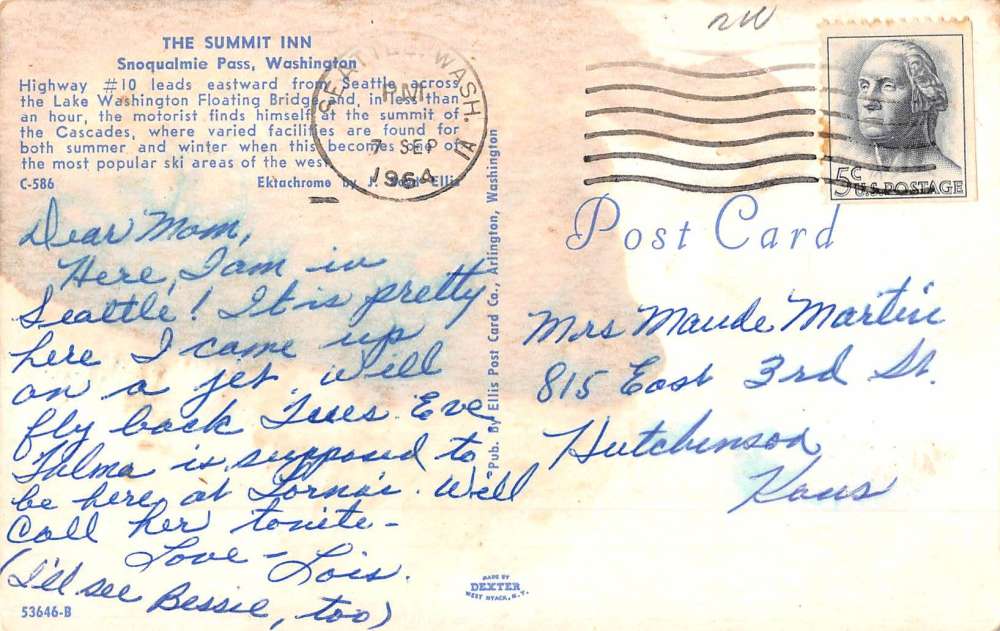 2W
THE SUMMIT INN
Snoqualmie Pass, Washington
Highway #10 leads eastward from Seattle across
the Lake Washington Floating Bridge and, in less than
an hour, the motorist finds himself at the summit of
the Cascades, where varied facilities are found for
both summer and winter when this becomes one of
the most popular ski areas of the west.
C-586
Ektachrome by J. Boyd Ellis
SEATTLE, WASH.
P.M.
7 SEP
1964
1A
5¢
U.S. POSTAGE
Post Card
Dear Mom,
Here, I am in
Seattle! It is pretty
here I came up
on a jet. Will
fly back Tues. Eve
Thelma is supposed to
be here at Lorna's. Will
Call her tonite-
Love - Lois.
(I'll see Bessie, too)
Pub. By Ellis Post Card Co., Arlington, Washington
Mrs Maude Martin
815 East 3rd St.
Hutchinson
Kans
MADE BY
DEXTER
WEST NYACK, N.Y.
53646-B